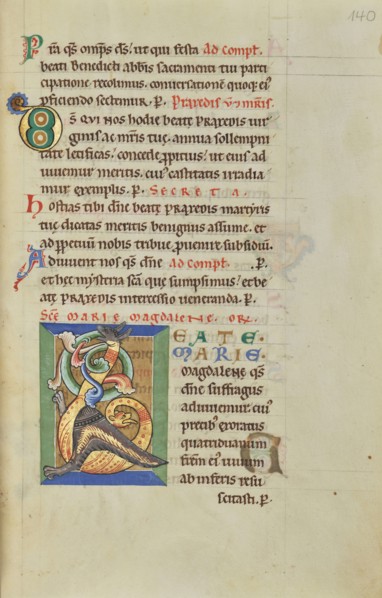 140
Pra qs omps ds. ut qui festa ad compt.
beati benedicti abbis sacramenti tui parti
cipatione recolimus. conversatione quoqe ei
pficiendo sectemur. p. Praxedis v. mris.
DS qui nos hodie beate praxedis vir
ginis ac mris tue. annua sollempni
tate letificas. concede ppitius. ut eius ad
iuuemur meritis. cui castitatis irradia
mur exemplis. p. Secreta.
Hostias tibi dne beate praxedis martyris
tue dicatas meritis benignus assume. et
ad ppetuum nobis tribue puenire subsidiu.
Adiuuent nos qs dne ad compt. .p.
et hec mysteria sca que sumpsimus. et be
ate praxedis intercessio ueneranda. p.
Sce Marie Magdalene. or.
BEATE
MARIE.
Magdalene qs
dne suffragiis
adiuuemur. cui
precib exoratus
quatriduanum
frem ei uiuum
ab inferis resu
scitasti. p.